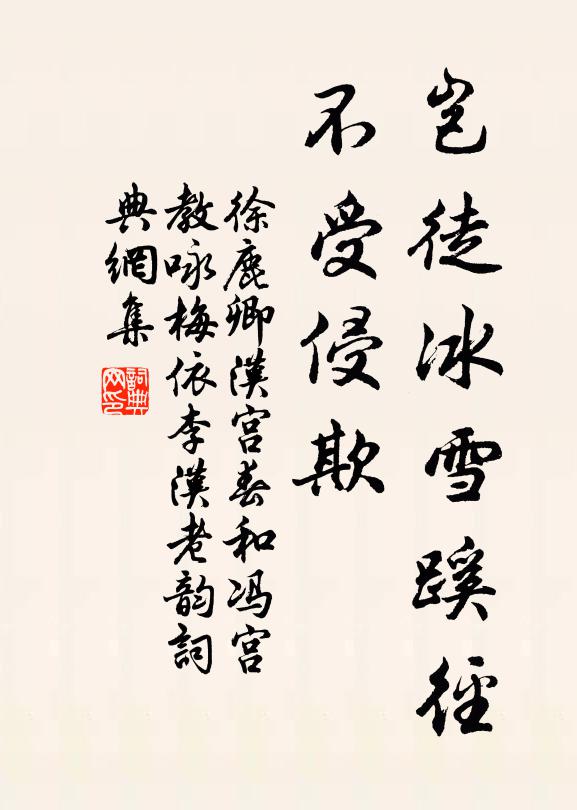 豈徒冰雪蹊徑
不受侵欺
徐鹿卿漢宮春和冯宮
教咏梅依李漢老韵詞
典網集
詞典
网印